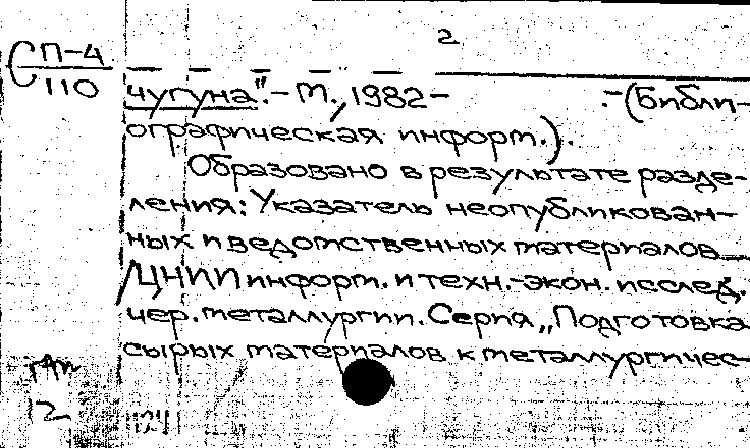 2
СП-4
110
чугуна".- М., 1982- .-(Библи-
ографическая информ.).
Образовано в результате разде-
ления: Указатель неопубликован-
ных и ведомственных материалов
/ЦНИИ информ. и техн.-экон. исслед.
чер. металлургии. Серия „Подготовка
сырых материалов к металлургичес-
12